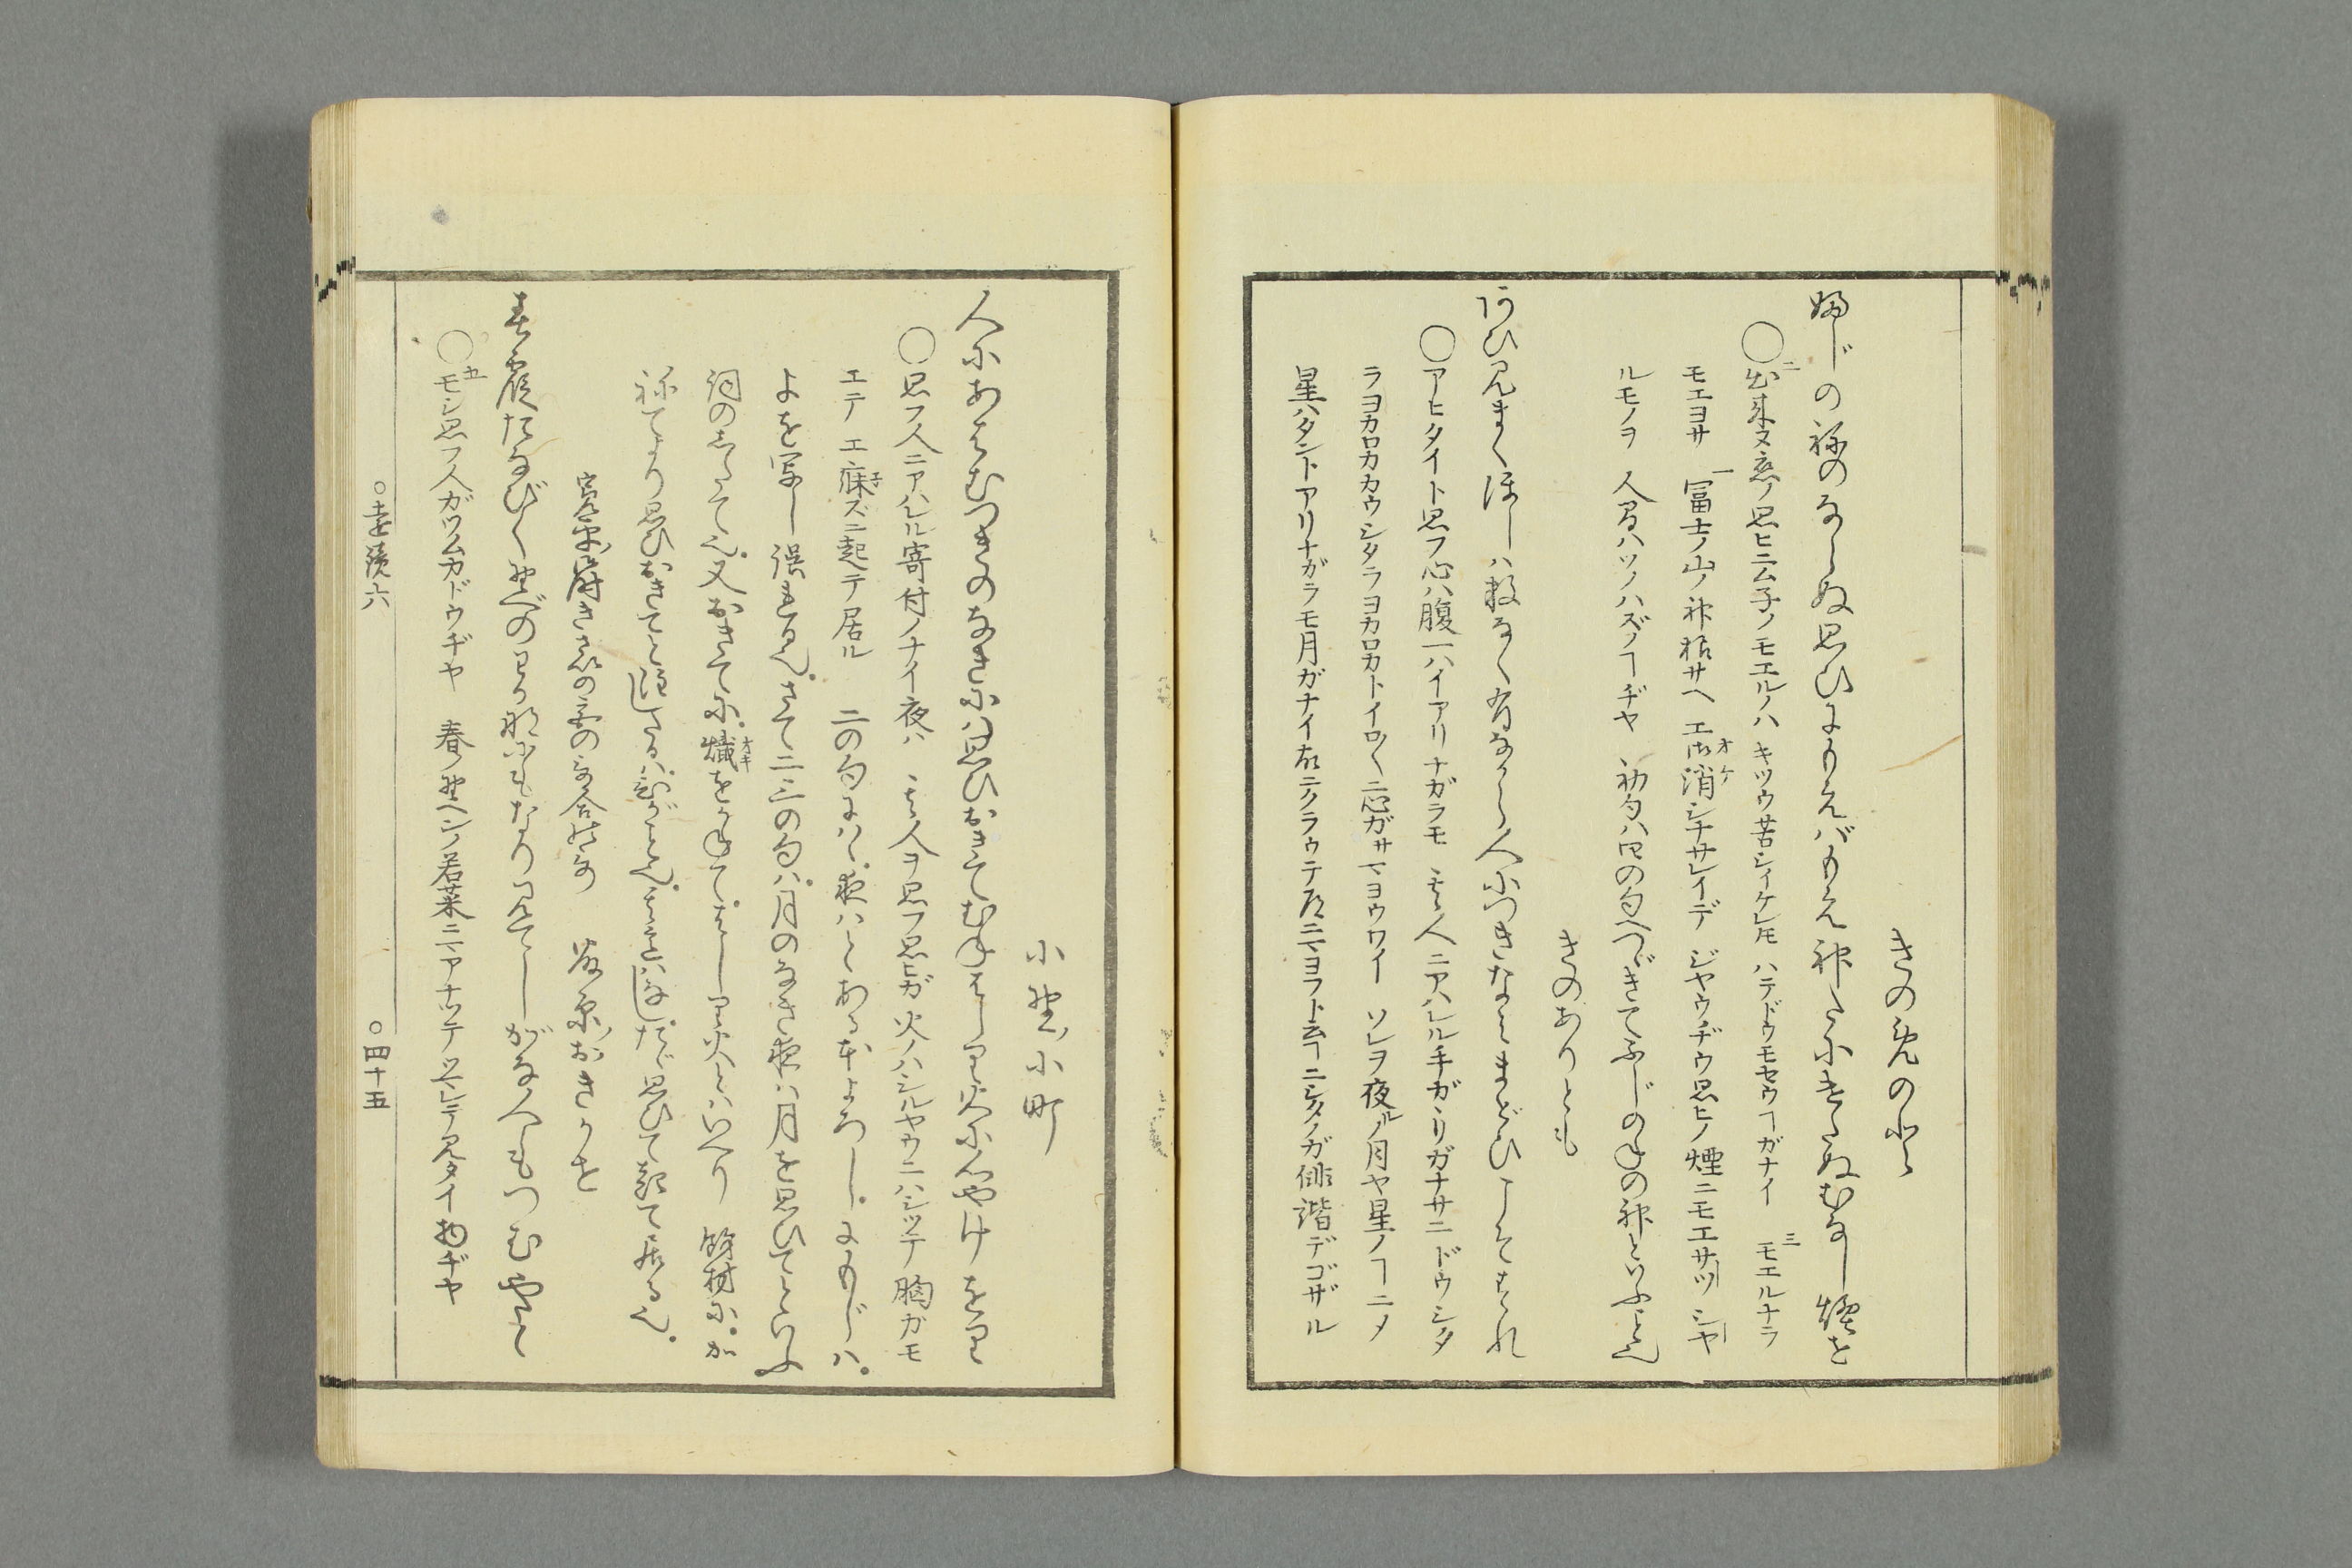 きのめのと
ふじのねのならぬ思ひにもえばもえ神だにけたぬむなし煙を
○二出来ヌ恋ノ思ヒニムネノモエルノハ キツウ苦シイケレドモ ハテドウモセウヿガナイ 三モエルナラ
モエヨサ 一冨士ノ山ノ神様サヘ エオ消ケシナサレイデ ジヤウヂウ思ヒノ煙ニモエサツシヤ
ルモノヲ 人間ハソノハズノヿヂヤ 初句ハ四の句へつゞきてふじのねの神といふこと也
きのありとも
あひ見まくほしハ数なく有ながら人につきなみまどひこそすれ
○アヒタイト思フ心ハ腹一ハイアリナガラモ 其人ニアハレル手ガヽリガナサニ ドウシタ
ラヨカロカ カウシタラヨカロカト イロ〳〵ニ心ガサマヨウワイ ソレヲ夜ルノ月ヤ星ノヿニメ
星ハタントアリナガラモ月ガナイ故ニクラウテ尽ニマヨフト云ヿニシタノガ俳諧デゴザル
小野ノ小町
人にあはむつきのなきにハ思ひおきてむねはしり火に心やけをり
○思フ人ニアハレル寄付ノナイ夜ハ 其人ヲ思フ思ヒガ 火ノハシルヤウニハシツテ 胸ガモ
エテ エ寐ネズニ起テ居ル 二の句にハ、夜ハとある本よろし。によじハ、
よを写し誤れる也。さて二三の句ハ、月のなき夜ハ月を思ひてといふ
詞のしたて也。又おきてに、熾オキをかねて、はしり火といへり 餘材に、か
ねてより思ひおきてと注したるハ、ひがこと也。こゝハたゞ思ひて起て居る也。
寛平ノ御時きさいの宮の哥合のうた 藤原ノおきかせ
春霞たなびく野べのわか菜にもなり見てしがな人もつむやと
○五モシ思フ人ガツムカドウヂヤ 春ノ野ヘンノ若菜ニマアナツテ ツマレテ見タイ物ヂヤ
○遠鏡六 ○四十五